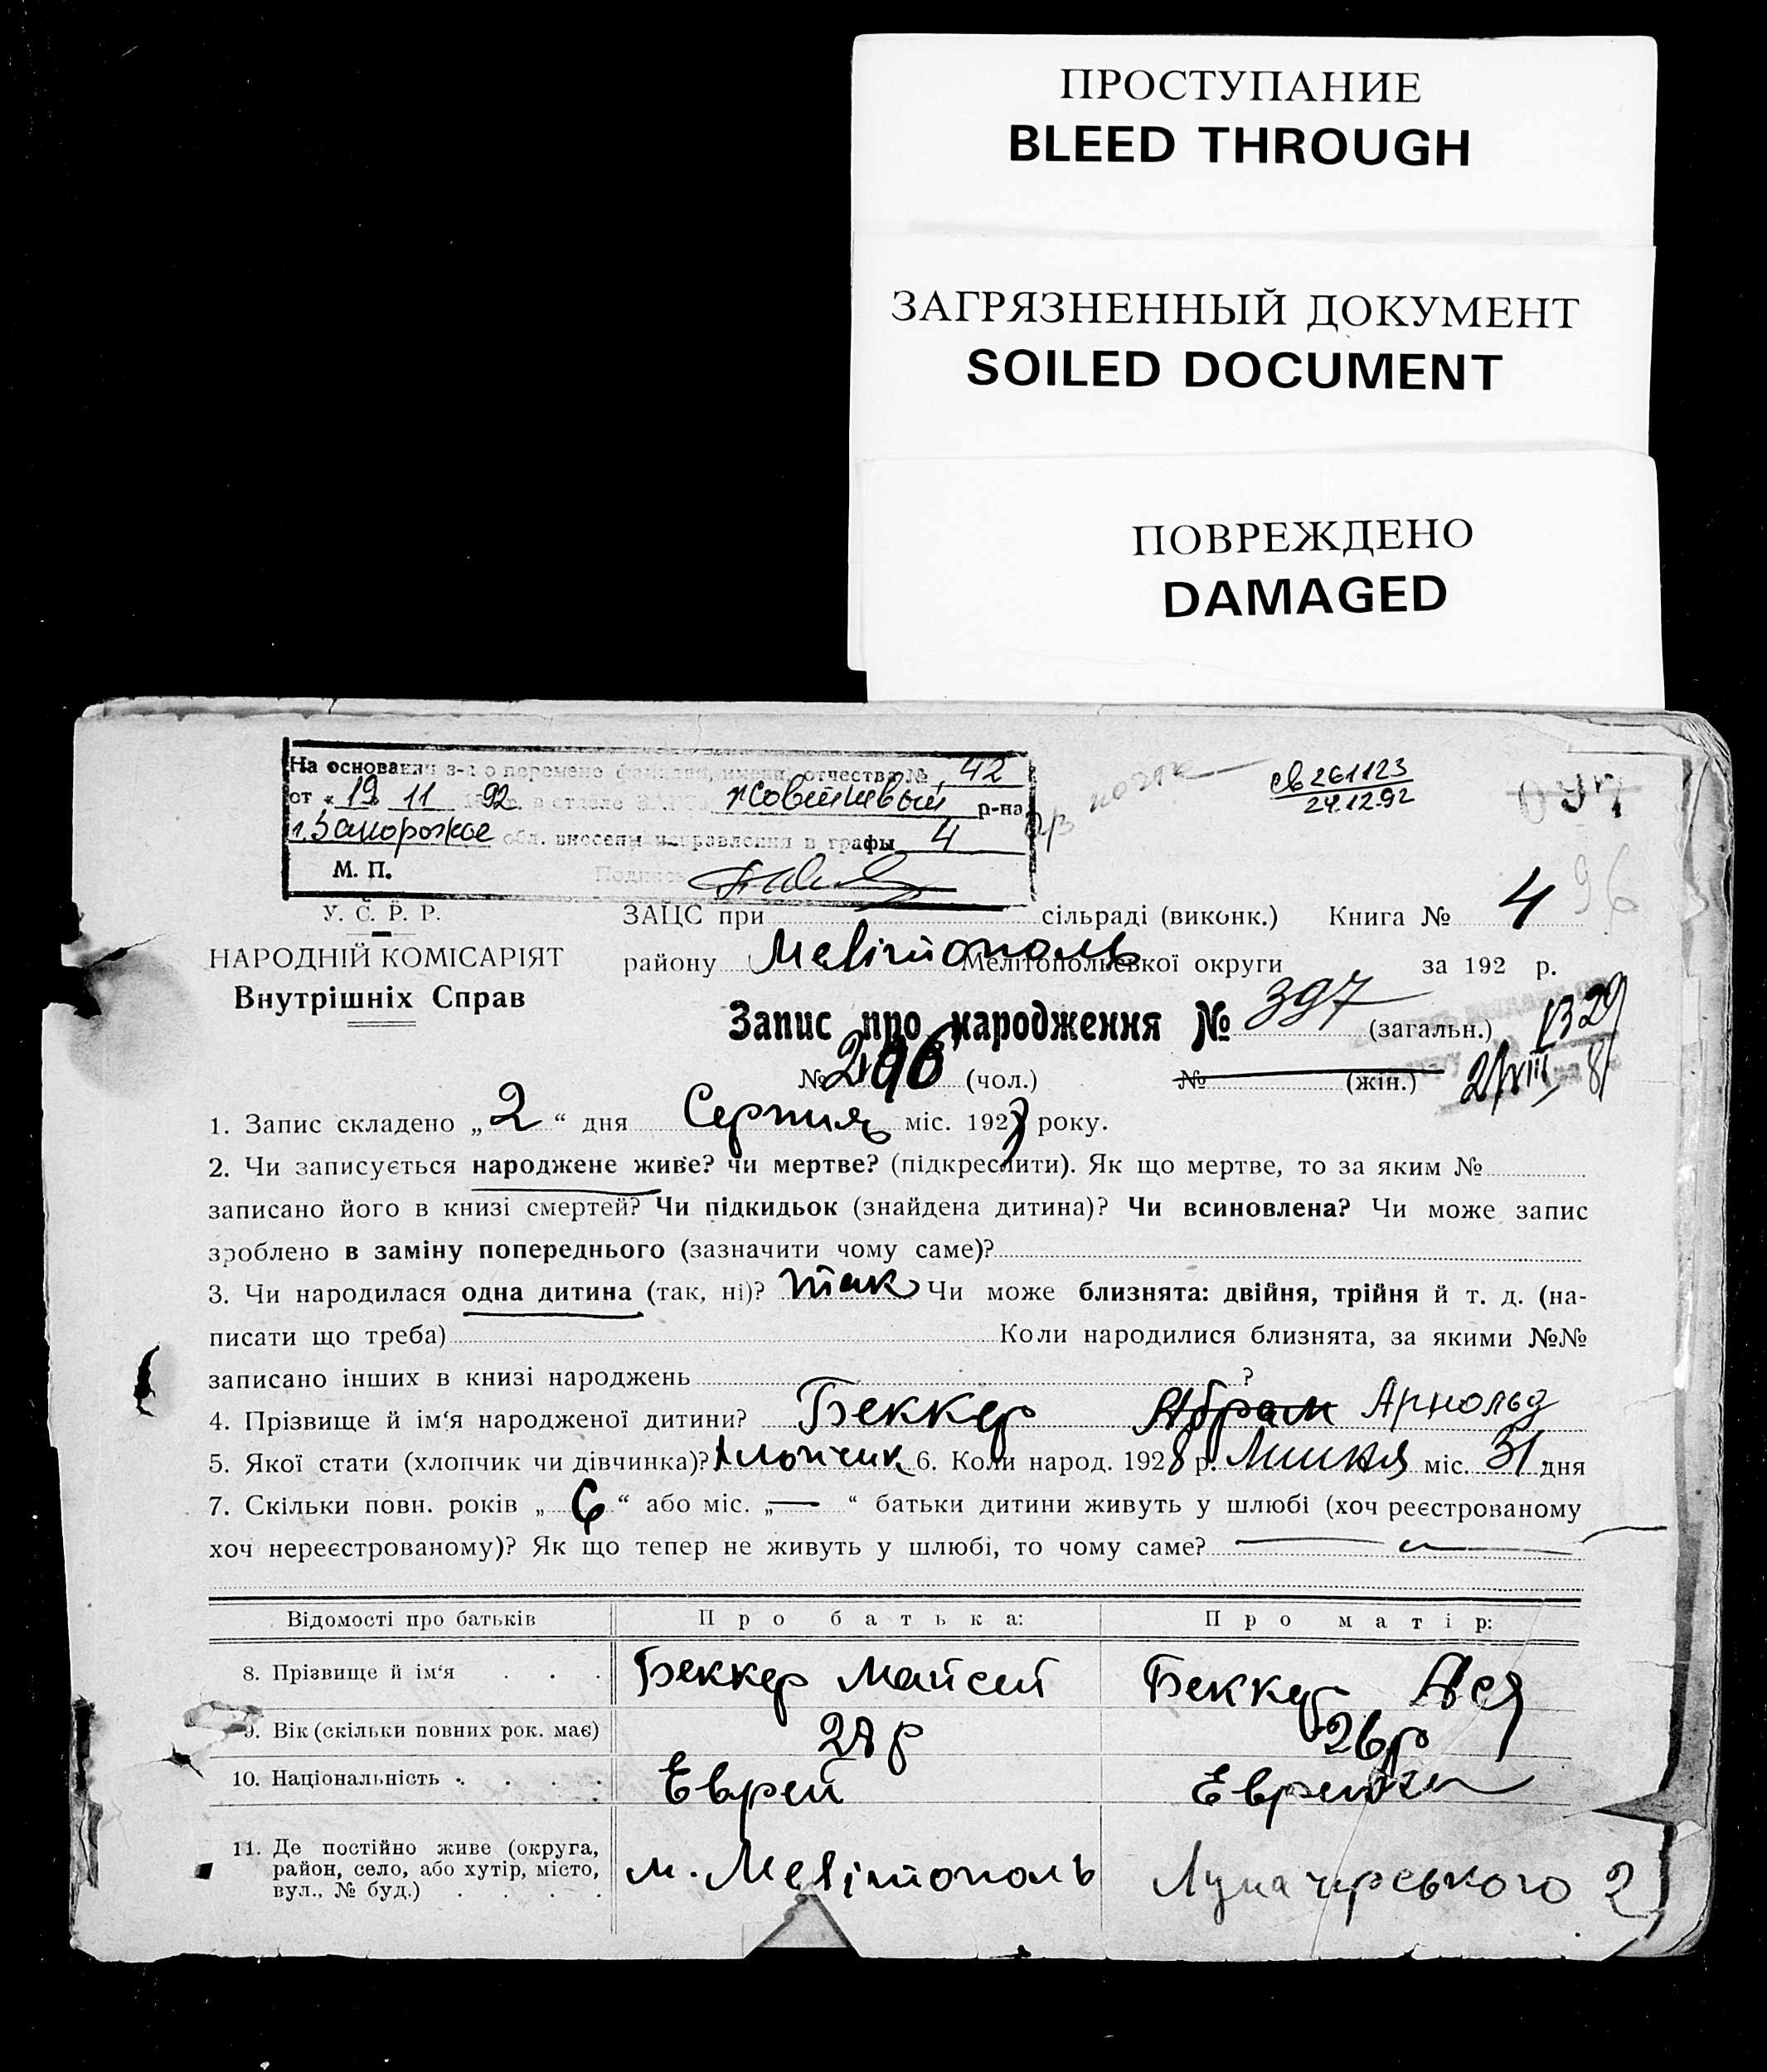 ПРОСТУПАНИЕ
BLEED THROUGH
ЗАГРЯЗНЕННЫЙ ДОКУМЕНТ
SOILED DOCUMENT
ПОВРЕЖДЕНО
DAMAGED
На основании з-я о перемене фамилии, имени, отчества № 42
от « 19 11 1992 г. в отделе ЗАГС Жовтневый р-на
г. Запорожье обл. внесены исправления в графы 4
М. П. Подпись
св 261123
24.12.92
96
У. С. Р. Р.
ЗАЦС при сільраді (виконк.) Книга № 4
НАРОДНІЙ КОМІСАРІЯТ
району Мелітополь Мелітопольської округи за 192 р.
Внутрішніх Справ
Запис про народження № 397 (загальн.)
№ 206 (чол.) № (жін.)
1. Запис складено „ 2 “ дня Серпня міс. 192 року.
2. Чи записується народжене живе? чи мертве? (підкреслити). Як що мертве, то за яким №
записано його в книзі смертей? Чи підкидьок (знайдена дитина)? Чи всиновлена? Чи може запис
зроблено в заміну попереднього (зазначити чому саме)?
3. Чи народилася одна дитина (так, ні)? так Чи може близнята: двійня, трійня й т. д. (на-
писати що треба) Коли народилися близнята, за якими №№
записано інших в книзі народжень ?
4. Прізвище й ім‘я народженої дитини? Беккер Абрам Арнольд
5. Якої стати (хлопчик чи дівчинка)? хлопчик 6. Коли народ. 1928 р. Липня міс. 31 дня
7. Скільки повн. років „ 6 “ або міс. „ — “ батьки дитини живуть у шлюбі (хоч реєстрованому
хоч нереєстрованому)? Як що тепер не живуть у шлюбі, то чому саме?
Відомості про батьків Про батька: Про матір:
8. Прізвище й ім‘я . . . Беккер Мойсей Беккер Ася
9. Вік (скільки повних рок. має) 28 р 26 р
10. Національність . . . . Еврей Еврейка
11. Де постійно живе (округа,
район, село, або хутір, місто,
вул., № буд.) . . . . м. Мелітополь Луначарського 2